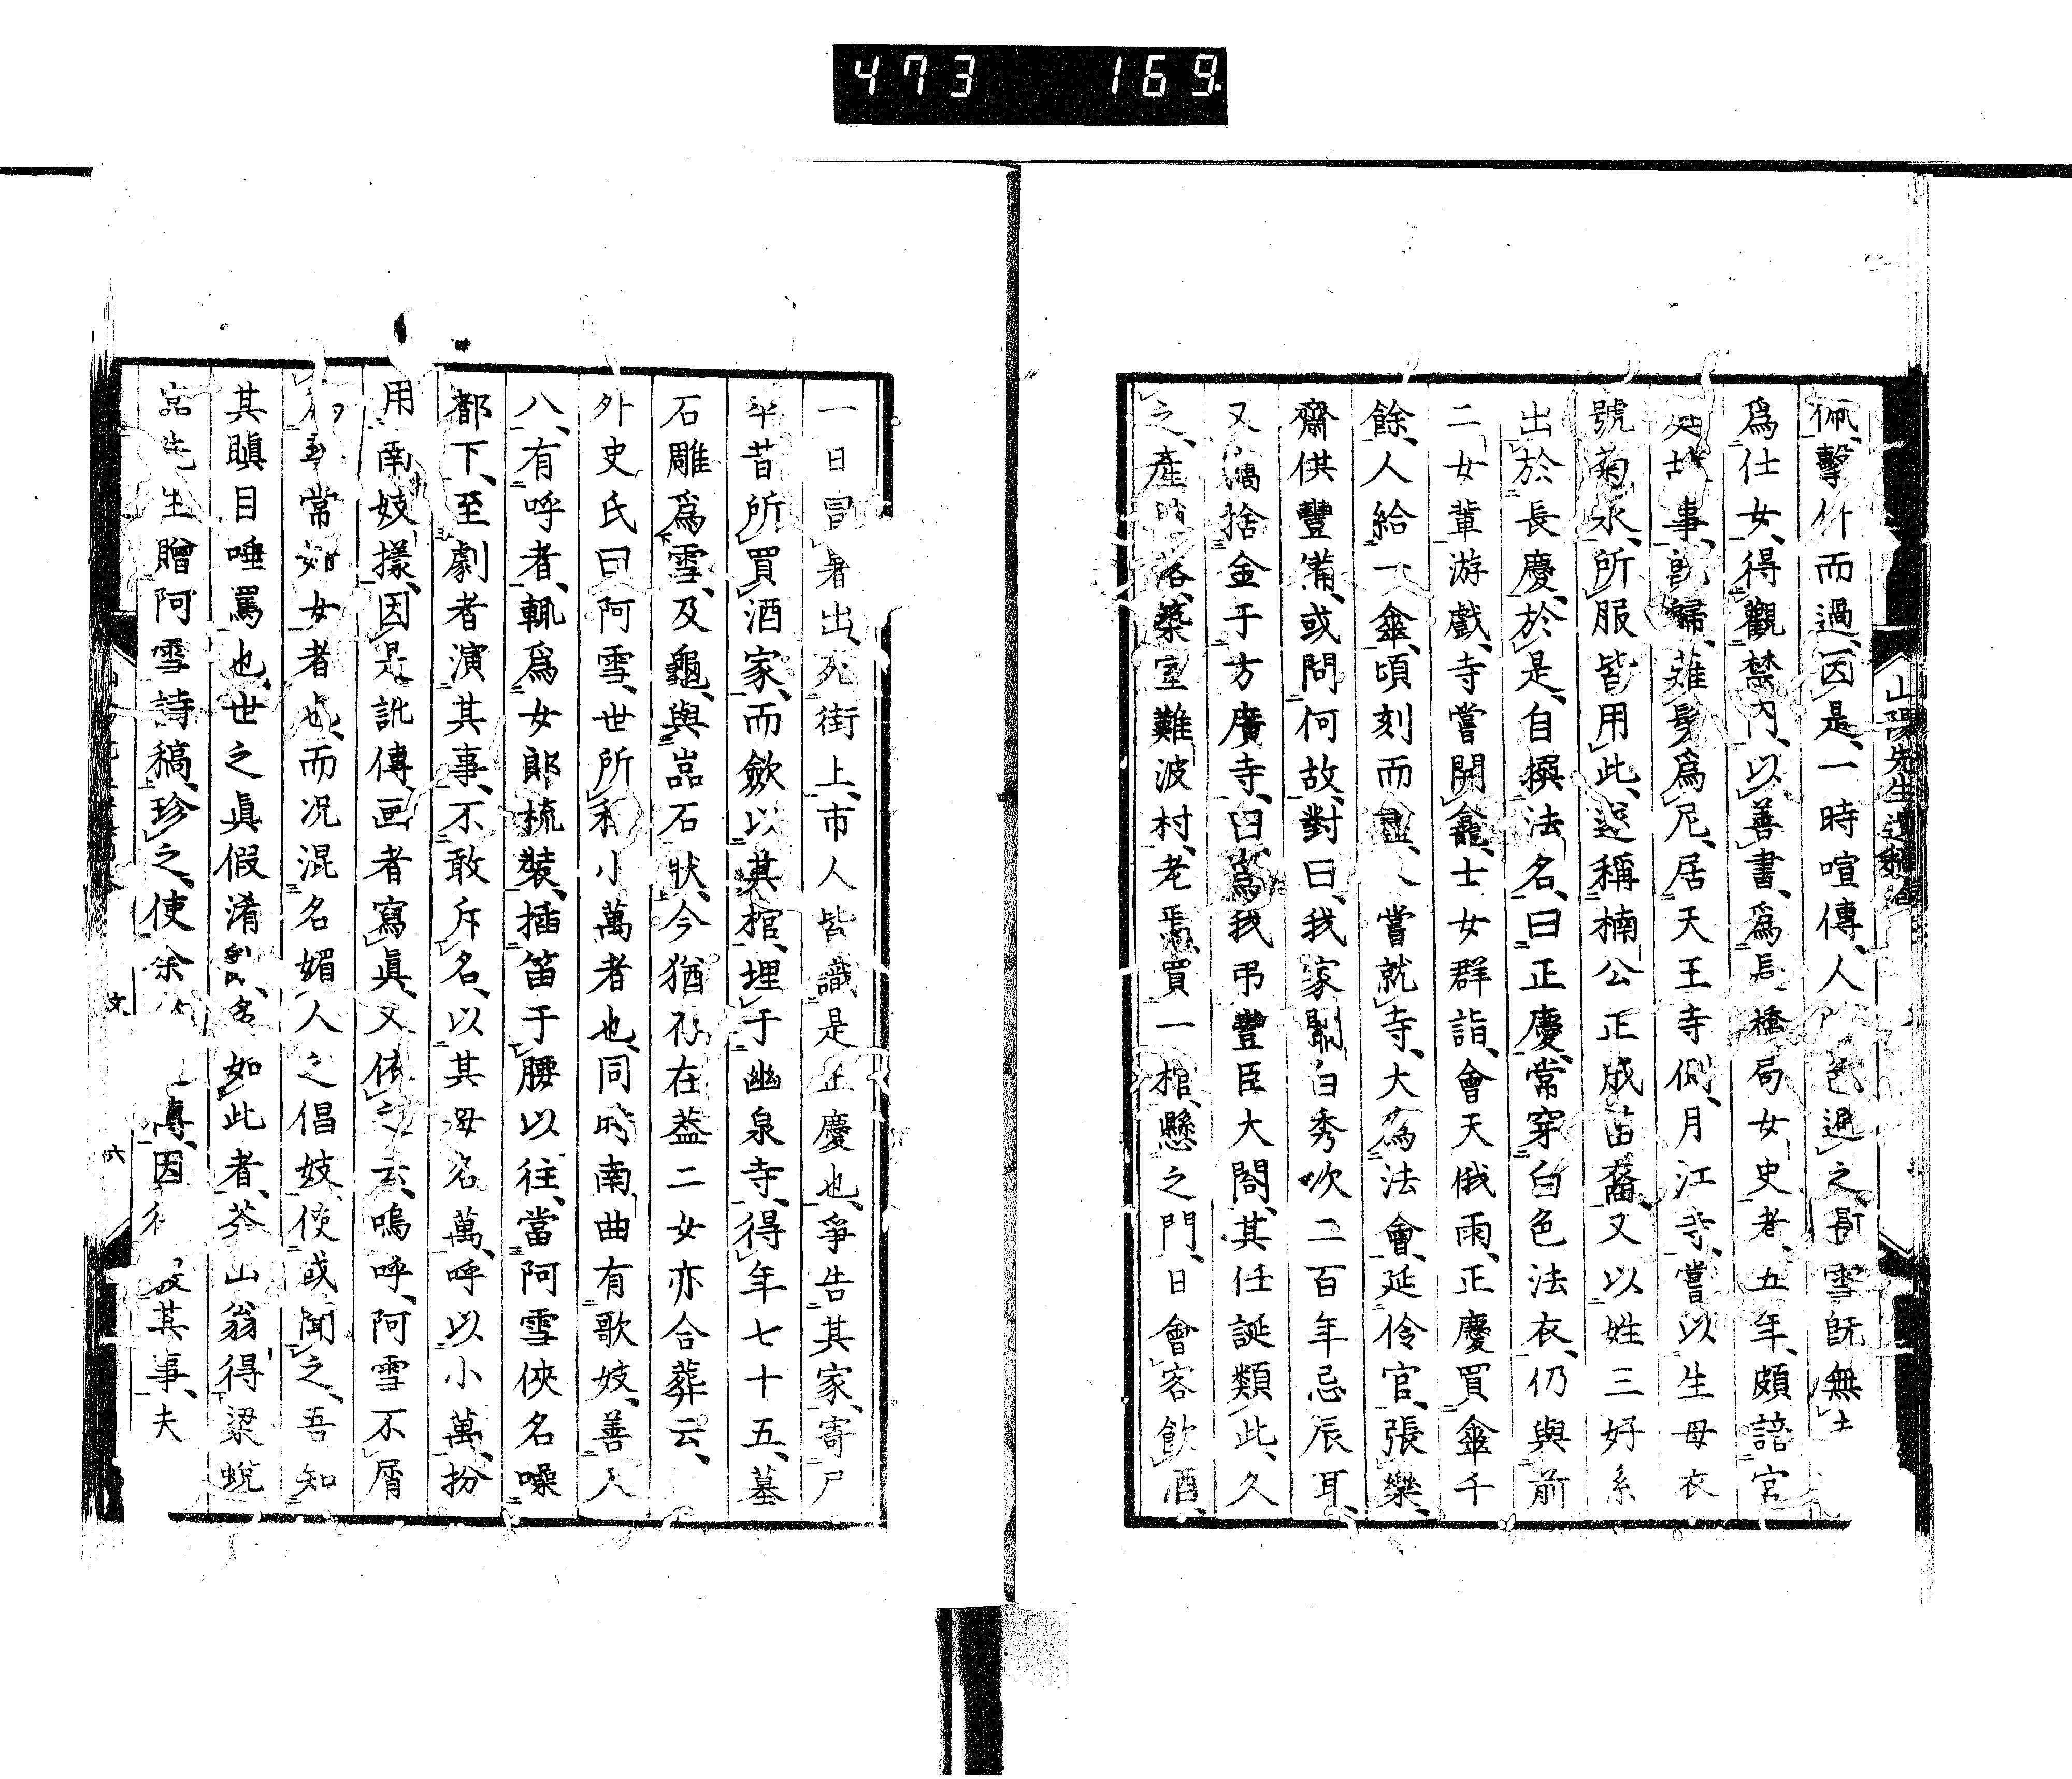 473 169
山陽先生遺稿卷
佩、擊竹而過、因是、一時喧傳、人色避之、雪既無
爲仕女、得觀禁內、以善書、爲長橋局女史者、五年、頗諳宮
事、既歸、薙髮爲尼、居天王寺側、月江寺、嘗以生母衣
號菊水、所服皆用此、遥稱楠公正成苗裔、又以姓三好系
出於長慶、於是、自撰法名、曰正慶、常穿白色法衣、仍與前
二女輩游戲、寺嘗開龕、士女群詣、會天俄雨、正慶買傘千
餘、人給一傘、頃刻而盡、嘗就寺、大為法會、延伶官、張樂、
齋供豐備、或問何故、對曰、我家關白秀次二百年忌辰耳、
又捨金于方廣寺、曰、爲我弔豐臣大閤、其任誕類此、久
之、產落、築室難波村、老焉、買一棺、懸之門、日會客飲酒、
一日冒暑出、死街上、市人皆識是正慶也、爭告其家、寄尸
平昔所買酒家、而斂以其棺、埋于幽泉寺、得年七十五、墓
石雕爲雪、及龜、與嵓石狀、今猶存在、蓋二女亦合葬云、
外史氏曰阿雪、世所稱小萬者也、同時南曲有歌妓、善
八、有呼者、輒爲女郎梳裝、插笛于腰以往、當阿雪俠名噪
都下、至劇者演其事、不敢斥名、以其母名萬、呼以小萬、扮
用南妓樣、因是訛傳、画者寫眞、又依之云、嗚呼、阿雪不屑
常女者也、而况混名媚人之倡妓、使或聞之、吾知
其瞋目唾罵也、世之眞假淆名如此者、茶山翁得梁蛻
嵓先生贈阿雪詩稿、珍之、使余因其事、夫
文 六